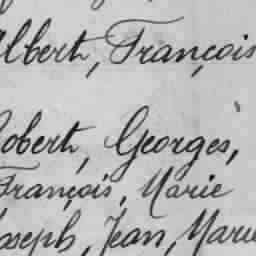 Albert, François
Robert, Georges,
François, Marie
Joseph, Jean, Marie